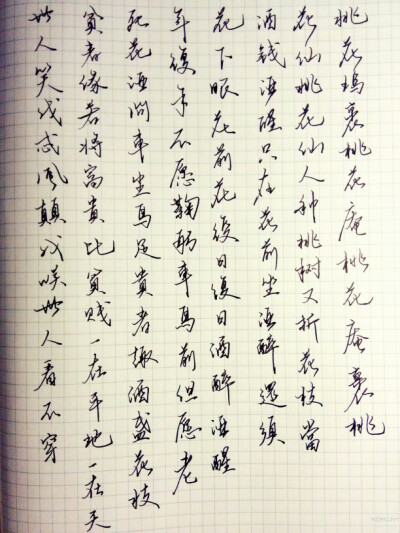 桃花塢裏桃花庵桃花庵裏桃
花仙桃花仙人种桃树又折花枝當
酒钱酒醒只在花前坐酒醉還須
花下眠花前花後日復日酒醉酒醒
年復年不愿鞠躬車馬前但愿老
死花酒间車尘馬足貴者趣酒盏花枝
貧者缘若将富貴比貧贱一在平地一在天
世人笑我忒風顛我咲世人看不穿